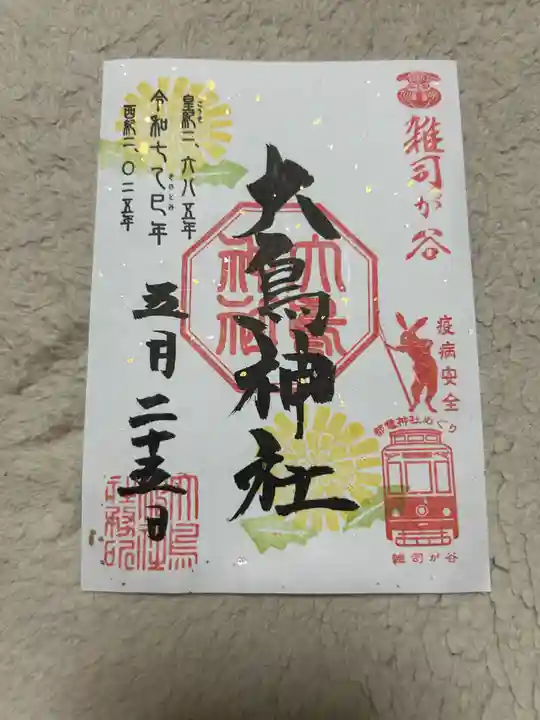 雑司が谷
疫病安全
都電神社めぐり
雑司が谷
大鳥神社
大鳥
神社
皇紀二、六八五年
こうき
令和七乙巳年
きのとみ
西紀二、〇二五年
五月二十五日
大鳥
神社
社務所